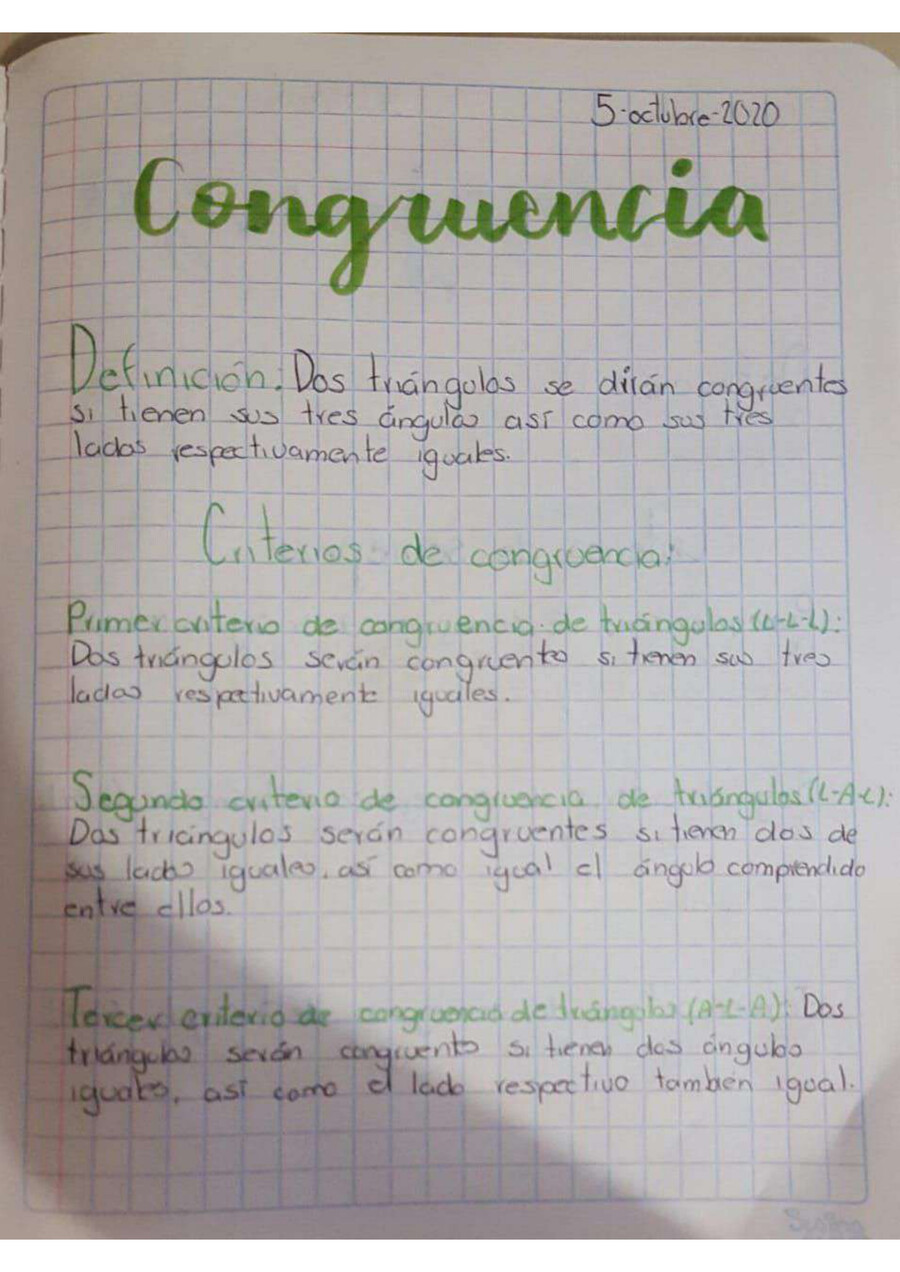 5-octubre-2020
Congruencia
Definición: Dos triángulos se dirán congruentes
si tienen sus tres ángulos así como sus tres
lados respectivamente iguales.
Criterios de congruencia:
Primer criterio de congruencia de triángulos (L-L-L):
Dos triángulos serán congruentes si tienen sus tres
lados respectivamente iguales.
Segundo criterio de congruencia de triángulos (L-A-L):
Dos triángulos serán congruentes si tienen dos de
sus lados iguales, así como igual el ángulo comprendido
entre ellos.
Tercer criterio de congruencia de triángulos (A-L-A): Dos
triángulos serán congruentes si tienen dos ángulos
iguales, así como el lado respectivo también igual.